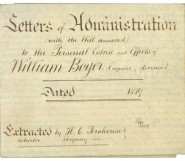 Letters of Administration
(with the Will annexed)
to the Personal Estate and Effects of
William Boyer Esquire, deceased
Dated 1887
Extracted by H. C.
Solicitor